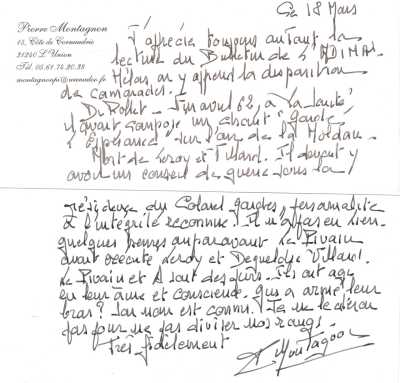 Pierre Montagnon
15, Côte de Cornendrie
31240 L'Union
Tél. 05.61.74.20.38
Ce 18 Mars
J'apprécie toujours autant la
lecture du Bulletin de l'ADIMAD.
Hélas, on y apprend la disparition
de camarades.
- En avril 62, à "La Santé"
il avait composé un chant "Gardez
l'Espérance" sur l'air de la Moldau.
Mort de Leroy et Villard. Il devait y
avoir un conseil de guerre sous la
présidence du Colonel Gardes, personnalité
à l'intégrité reconnue. Il n'a pas eu lieu.
quelques heures auparavant Le Pivain
avait exécuté Leroy et Degueldre Villard.
Le Pivain et D sont des purs. Ils ont agi
en leur âme et conscience. Qui a armé leur
bras? Son nom est connu. Je ne le dirai
pas pour ne pas diviser nos rangs.
Très fidèlement
P Montagnon